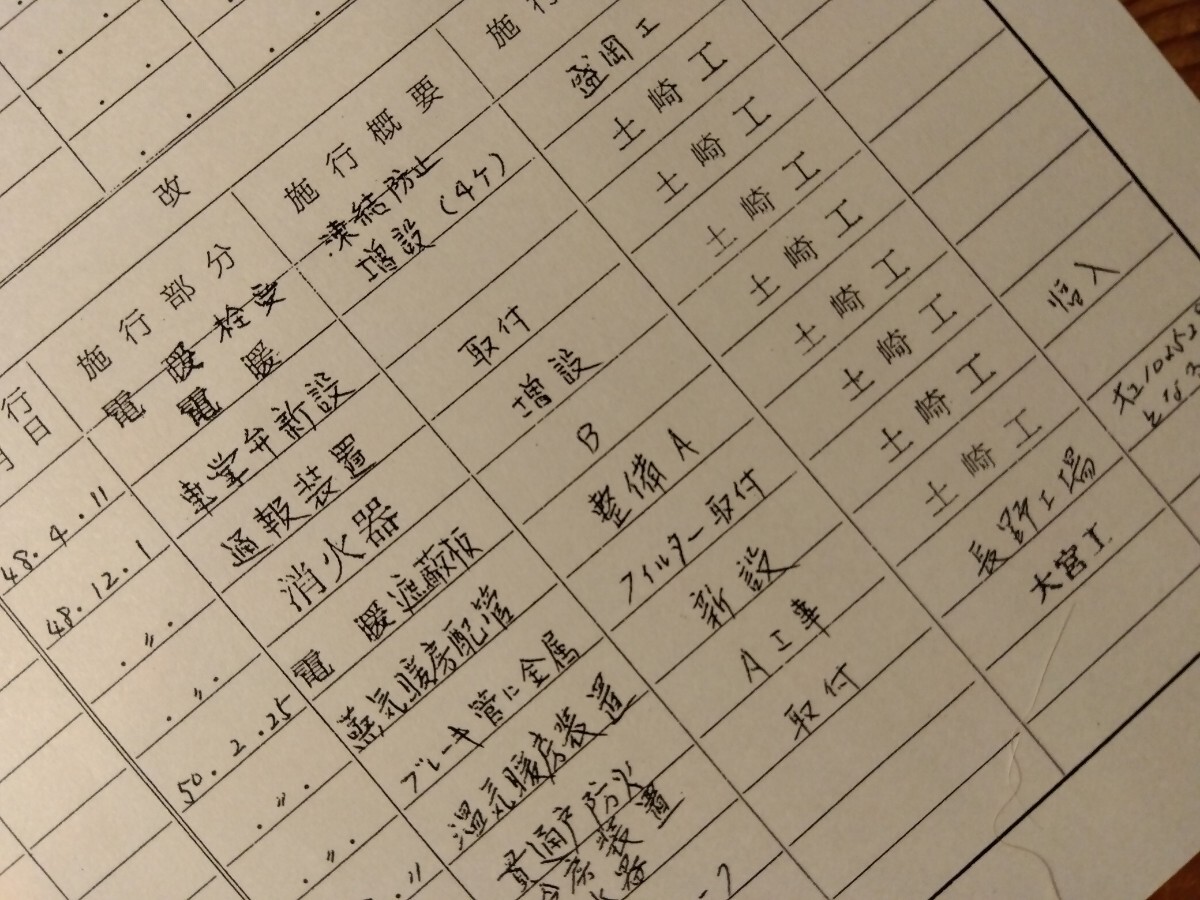 改
行 施行部分 施行概要 施行
月日
電暖栓受 凍結防止 盛岡工
48.4.11 電暖 増設(4ケ) 土崎工
48.12.1 車掌弁新設 土崎工
〃 通報装置 取付 土崎工
〃 消火器 増設 土崎工
50.2.25 電暖遮蔽板 B 土崎工
〃 蒸気暖房配管 整備A 土崎工
〃 ブレーキ管に金属 フィルター取付 土崎工
温気暖房装置 新設 土崎工
貫通戸防火 A工事 長野工場
装置 取付 大宮工
となる